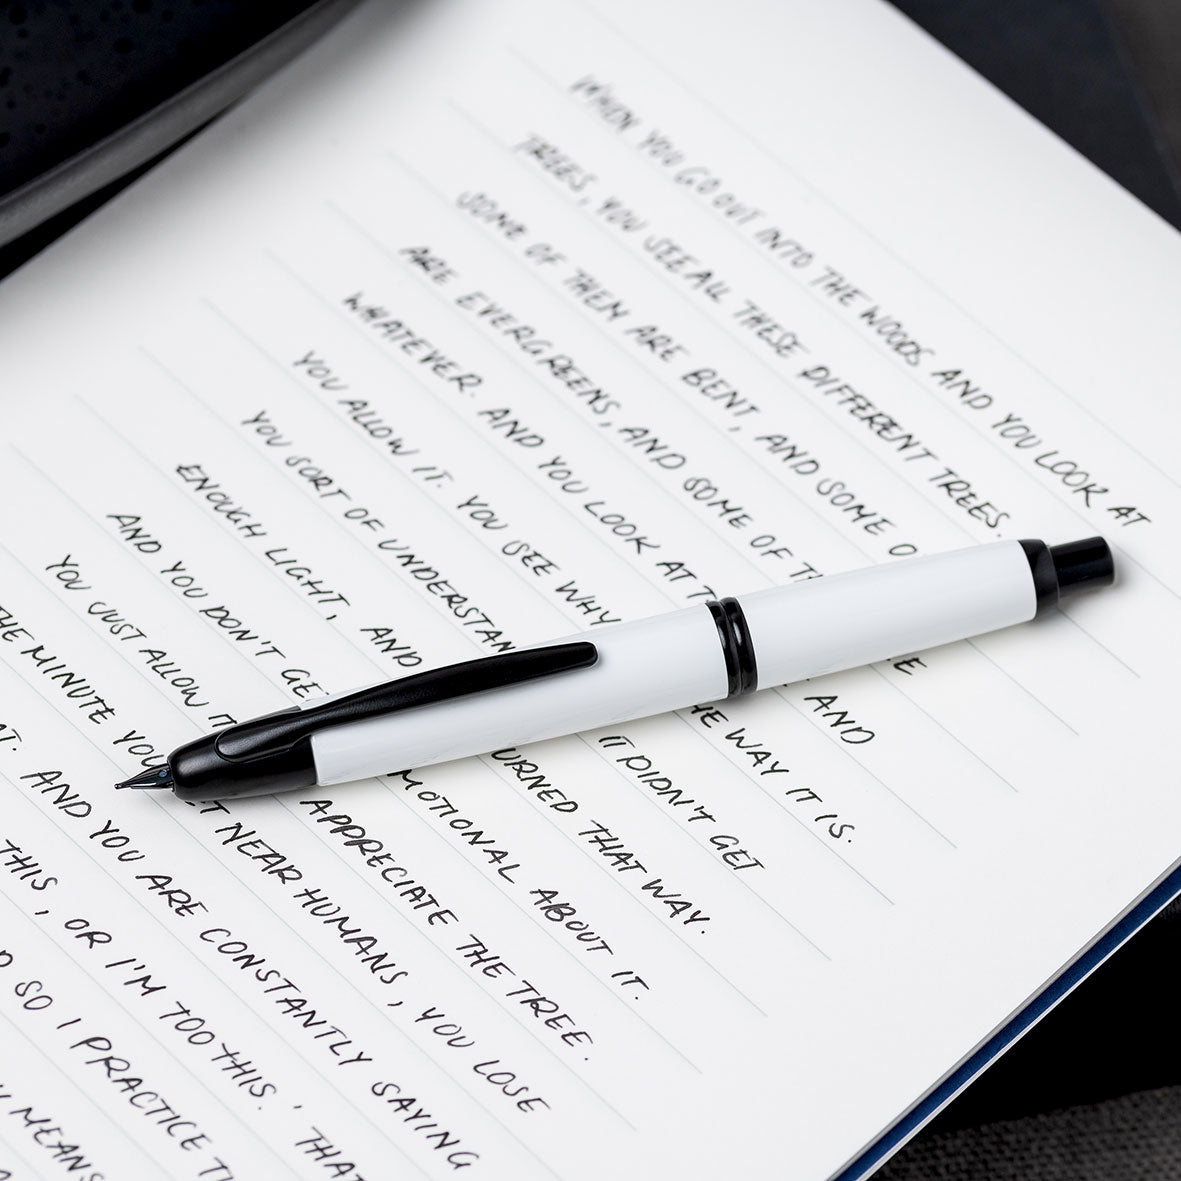 WHEN YOU GO OUT INTO THE WOODS AND YOU LOOK AT
TREES, YOU SEE ALL THESE DIFFERENT TREES.
SOME OF THEM ARE BENT, AND SOME O
ARE EVERGREENS, AND SOME OF
WHATEVER. AND YOU LOOK AT T AND
YOU ALLOW IT. YOU SEE WHY THE WAY IT IS.
YOU SORT OF UNDERSTAN IT DIDN'T GET
ENOUGH LIGHT, AND URNED THAT WAY.
AND YOU DON'T GE MOTIONAL ABOUT IT.
YOU JUST ALLOW IT APPRECIATE THE TREE.
THE MINUTE YOU NEAR HUMANS, YOU LOSE
AND YOU ARE CONSTANTLY SAYING
THIS, OR I'M TOO THIS.' THAT
SO I PRACTICE
MEANS